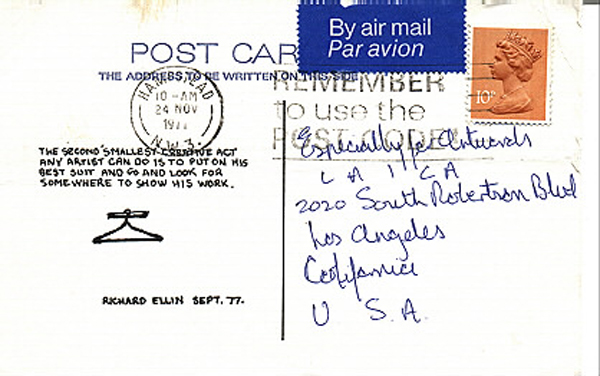 By air mail
Par avion
POST CAR
THE ADDRESS TO BE WRITTEN ON THIS SIDE
HAMPSTEAD
10 - AM
24 NOV
1977
N.W.3.
REMEMBER
to use the
POST CODE
10P
THE SECOND SMALLEST CREATIVE ACT
ANY ARTIST CAN DO IS TO PUT ON HIS
BEST SUIT AND GO AND LOOK FOR
SOMEWHERE TO SHOW HIS WORK.
RICHARD ELLIN SEPT. 77.
Especially
L A I CA
2020 South Robertson Blvd
Los Angeles
California
U S.A.